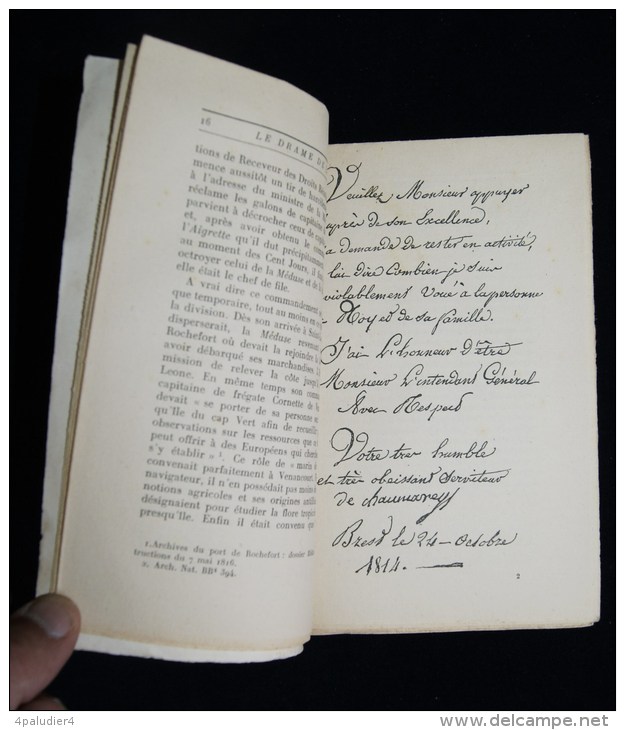 16
LE DRAME DE
tions de Receveur des Droits
mence aussitôt un tir de
à l'adresse du ministre de la
réclame les galons de capitaine
parvient à décrocher ceux de
et, après avoir obtenu le
l'Aigrette qu'il dut précipitamment
au moment des Cent Jours, il
octroyer celui de la Méduse et de
elle était le chef de file.
A vrai dire ce commandement
que temporaire, tout au moins en
la division. Dès son arrivée à
disperserait, la Méduse
Rochefort où devait la rejoindre
avoir débarqué ses marchandises.
mission de relever la côte jusqu'à
Leone. En même temps son
capitaine de frégate Cornette de
devait « se porter de sa personne
qu'île du cap Vert afin de
observations sur les ressources que
peut offrir à des Européens qui
s'y établir » ². Ce rôle de
convenait parfaitement à Venancourt,
navigateur, il n'en possédait pas moins
notions agricoles et ses origines
désignaient pour étudier la flore
presqu'île. Enfin il était convenu que
1. Archives du port de Rochefort : dossier
tructions du 7 mai 1816.
2. Arch. Nat. BB⁴ 394.
Veuillez Monsieur appuyer
auprès de son Excellence,
la demande de rester en activité,
lui dire Combien je suis
violablement Voué à la personne
Roy et de sa famille.
J'ai L'honneur D'être
Monsieur L'intendant Général
Avec Respect
Votre très humble
et très obeissant Serviteur
de chaumareys
Brest le 24 Octobre
1814.
2
4paludier4
www.delcampe.net